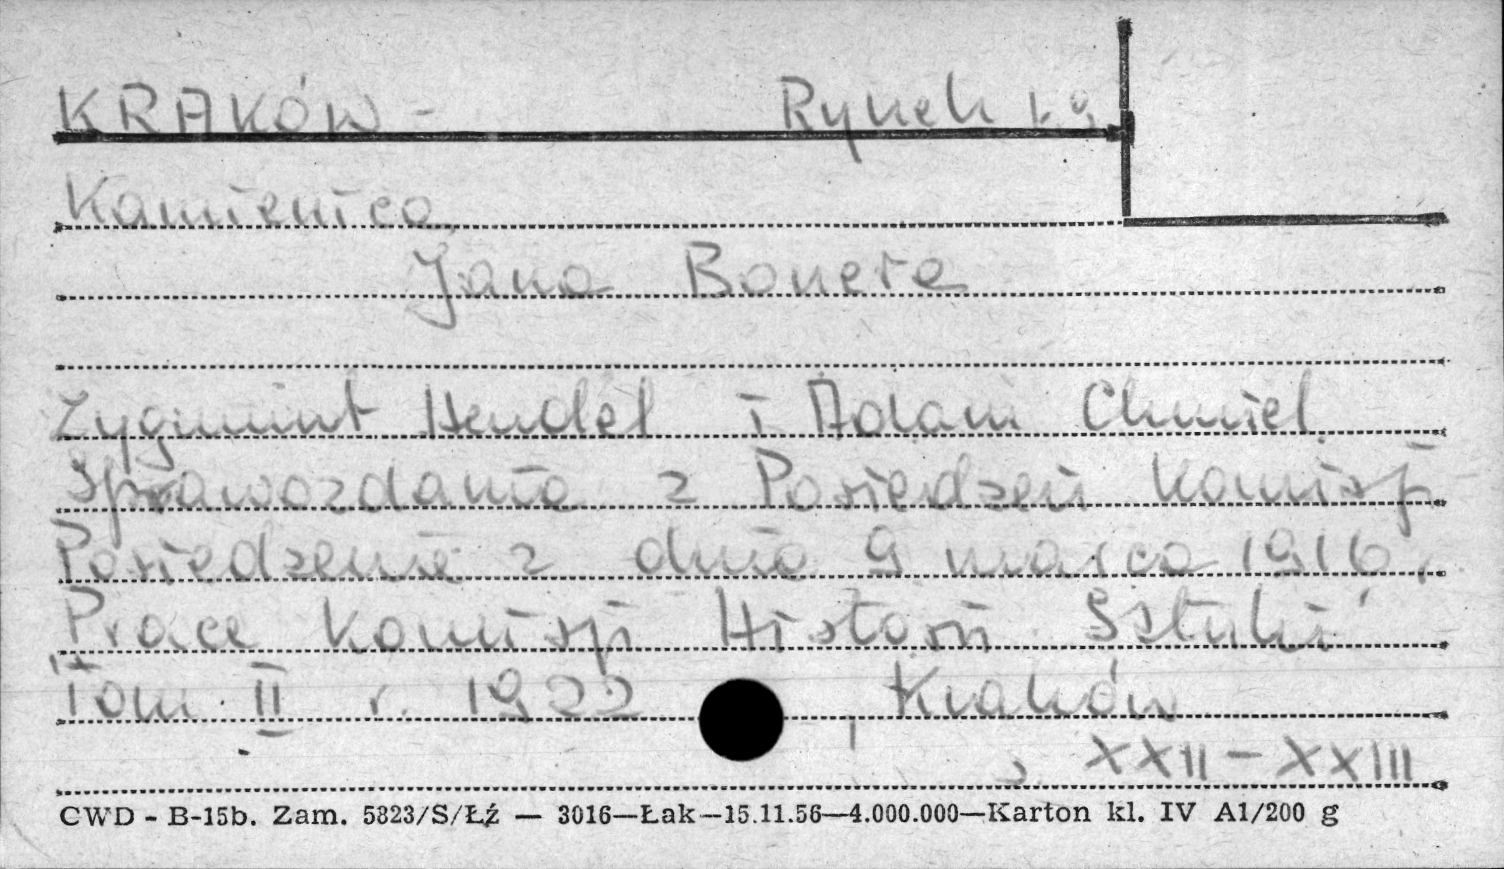 KRAKÓW - Rynek
Kamienica
Jana Bonera
Zygmunt Hendel i Adam Chmiel
Sprawozdania z Posiedzeń Komisji
Posiedzenie z dnia 9 marca 1916.
Prace Komisji Historii Sztuki
Tom II r. 1922, Kraków
, XXII - XXIII
CWD - B-15b. Zam. 5823/S/Łź — 3016—Łak—15.11.56—4.000.000—Karton kl. IV A1/200 g